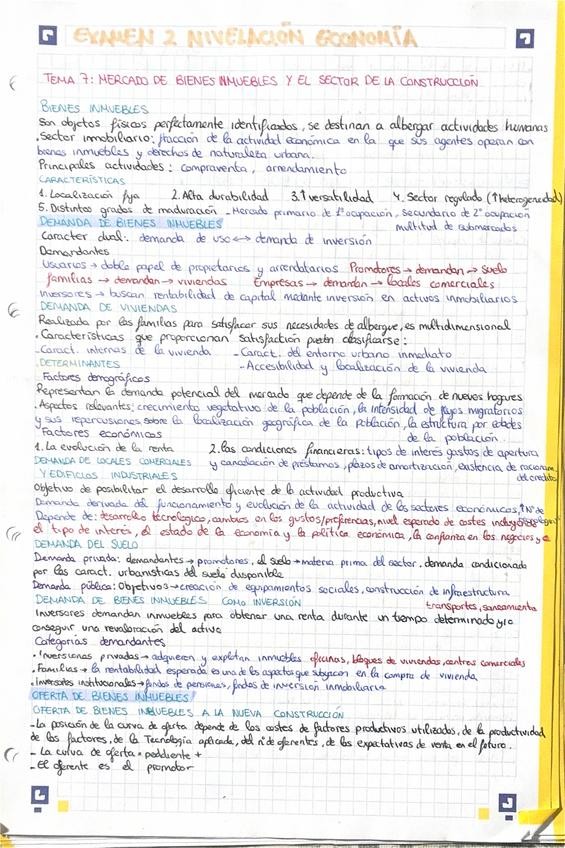 EXAMEN 2 NIVELACIÓN ECONOMÍA
TEMA 7: MERCADO DE BIENES INMUEBLES Y EL SECTOR DE LA CONSTRUCCIÓN
BIENES INMUEBLES
Son objetos físicos perfectamente identificados, se destinan a albergar actividades humanas
. Sector inmobiliario: fracción de la actividad económica en la que sus agentes operan con
bienes inmuebles y derechos de naturaleza urbana.
Principales actividades: compraventa, arrendamiento
CARACTERÍSTICAS
1. Localización fija 2. Alta durabilidad 3. ↑ versatilidad 4. Sector regulado (↑ heterogeneidad)
5. Distintos grados de maduración - Mercado primario de 1ª ocupación, Secundario de 2ª ocupación
multitud de submercados
DEMANDA DE BIENES INMUEBLES
Caracter dual: demanda de uso ↔ demanda de inversión
Demandantes
Usuarios → doble papel de propietarios y arrendatarios Promotores → demandan → suelo
familias → demandan → viviendas Empresas → demandan → locales comerciales
Inversores → buscan rentabilidad de capital mediante inversión en activos inmobiliarios
DEMANDA DE VIVIENDAS
Realizada por las familias para satisfacer sus necesidades de albergue, es multidimensional
. Características que proporcionan satisfacción pueden clasificarse:
- Caract. internas de la vivienda - Caract. del entorno urbano inmediato
- Accesibilidad y localización de la vivienda
. DETERMINANTES
Factores demográficos
Representan la demanda potencial del mercado que depende de la formación de nuevos hogares
. Aspectos relevantes: crecimiento vegetativo de la población, la intensidad de flujos migratorios
y sus repercusiones sobre la localización geográfica de la población, la estructura por edades
de la población.
Factores económicos
1. La evolución de la renta 2. Las condiciones financieras: tipos de interés gastos de apertura
y cancelación de préstamos, plazos de amortización, existencia de racionam.
del crédito
DEMANDA DE LOCALES COMERCIALES
Y EDIFICIOS INDUSTRIALES
Objetivo de posibilitar el desarrollo eficiente de la actividad productiva
Demanda derivada del funcionamiento y evolución de la actividad de los sectores económicos,
Depende de: desarrollo tecnológico, cambios en los gustos/preferencias, nivel esperado de costes
el tipo de interés, el estado de la economía y la política económica, la confianza en los negocios
DEMANDA DEL SUELO
Demanda privada: demandantes → promotores, el suelo → materia prima del sector, demanda condicionado
por las caract. urbanísticas del suelo disponible
Demanda pública: Objetivos → creación de equipamientos sociales, construcción de infraestructura
transportes, saneamiento
DEMANDA DE BIENES INMUEBLES COMO INVERSIÓN
Inversores demandan inmuebles para obtener una renta durante un tiempo determinado y/o
conseguir una revaloración del activo
Categorías demandantes
. Inversiones privadas → adquieren y explotan inmuebles oficinas, bloques de viviendas, centros comerciales
. Familias → la rentabilidad esperada es uno de los aspectos que subyacen en la compra de vivienda.
. Inversores institucionales → fondos de pensiones, fondos de inversión inmobiliaria
OFERTA DE BIENES INMUEBLES
OFERTA DE BIENES INMUEBLES A LA NUEVA CONSTRUCCIÓN
- La posición de la curva de oferta depende de los costes de factores productivos utilizados, de la productividad
de los factores, de la Tecnología aplicada, del nº de oferentes, de las expectativas de venta en el futuro.
- La curva de oferta = pendiente +
- El oferente es el promotor